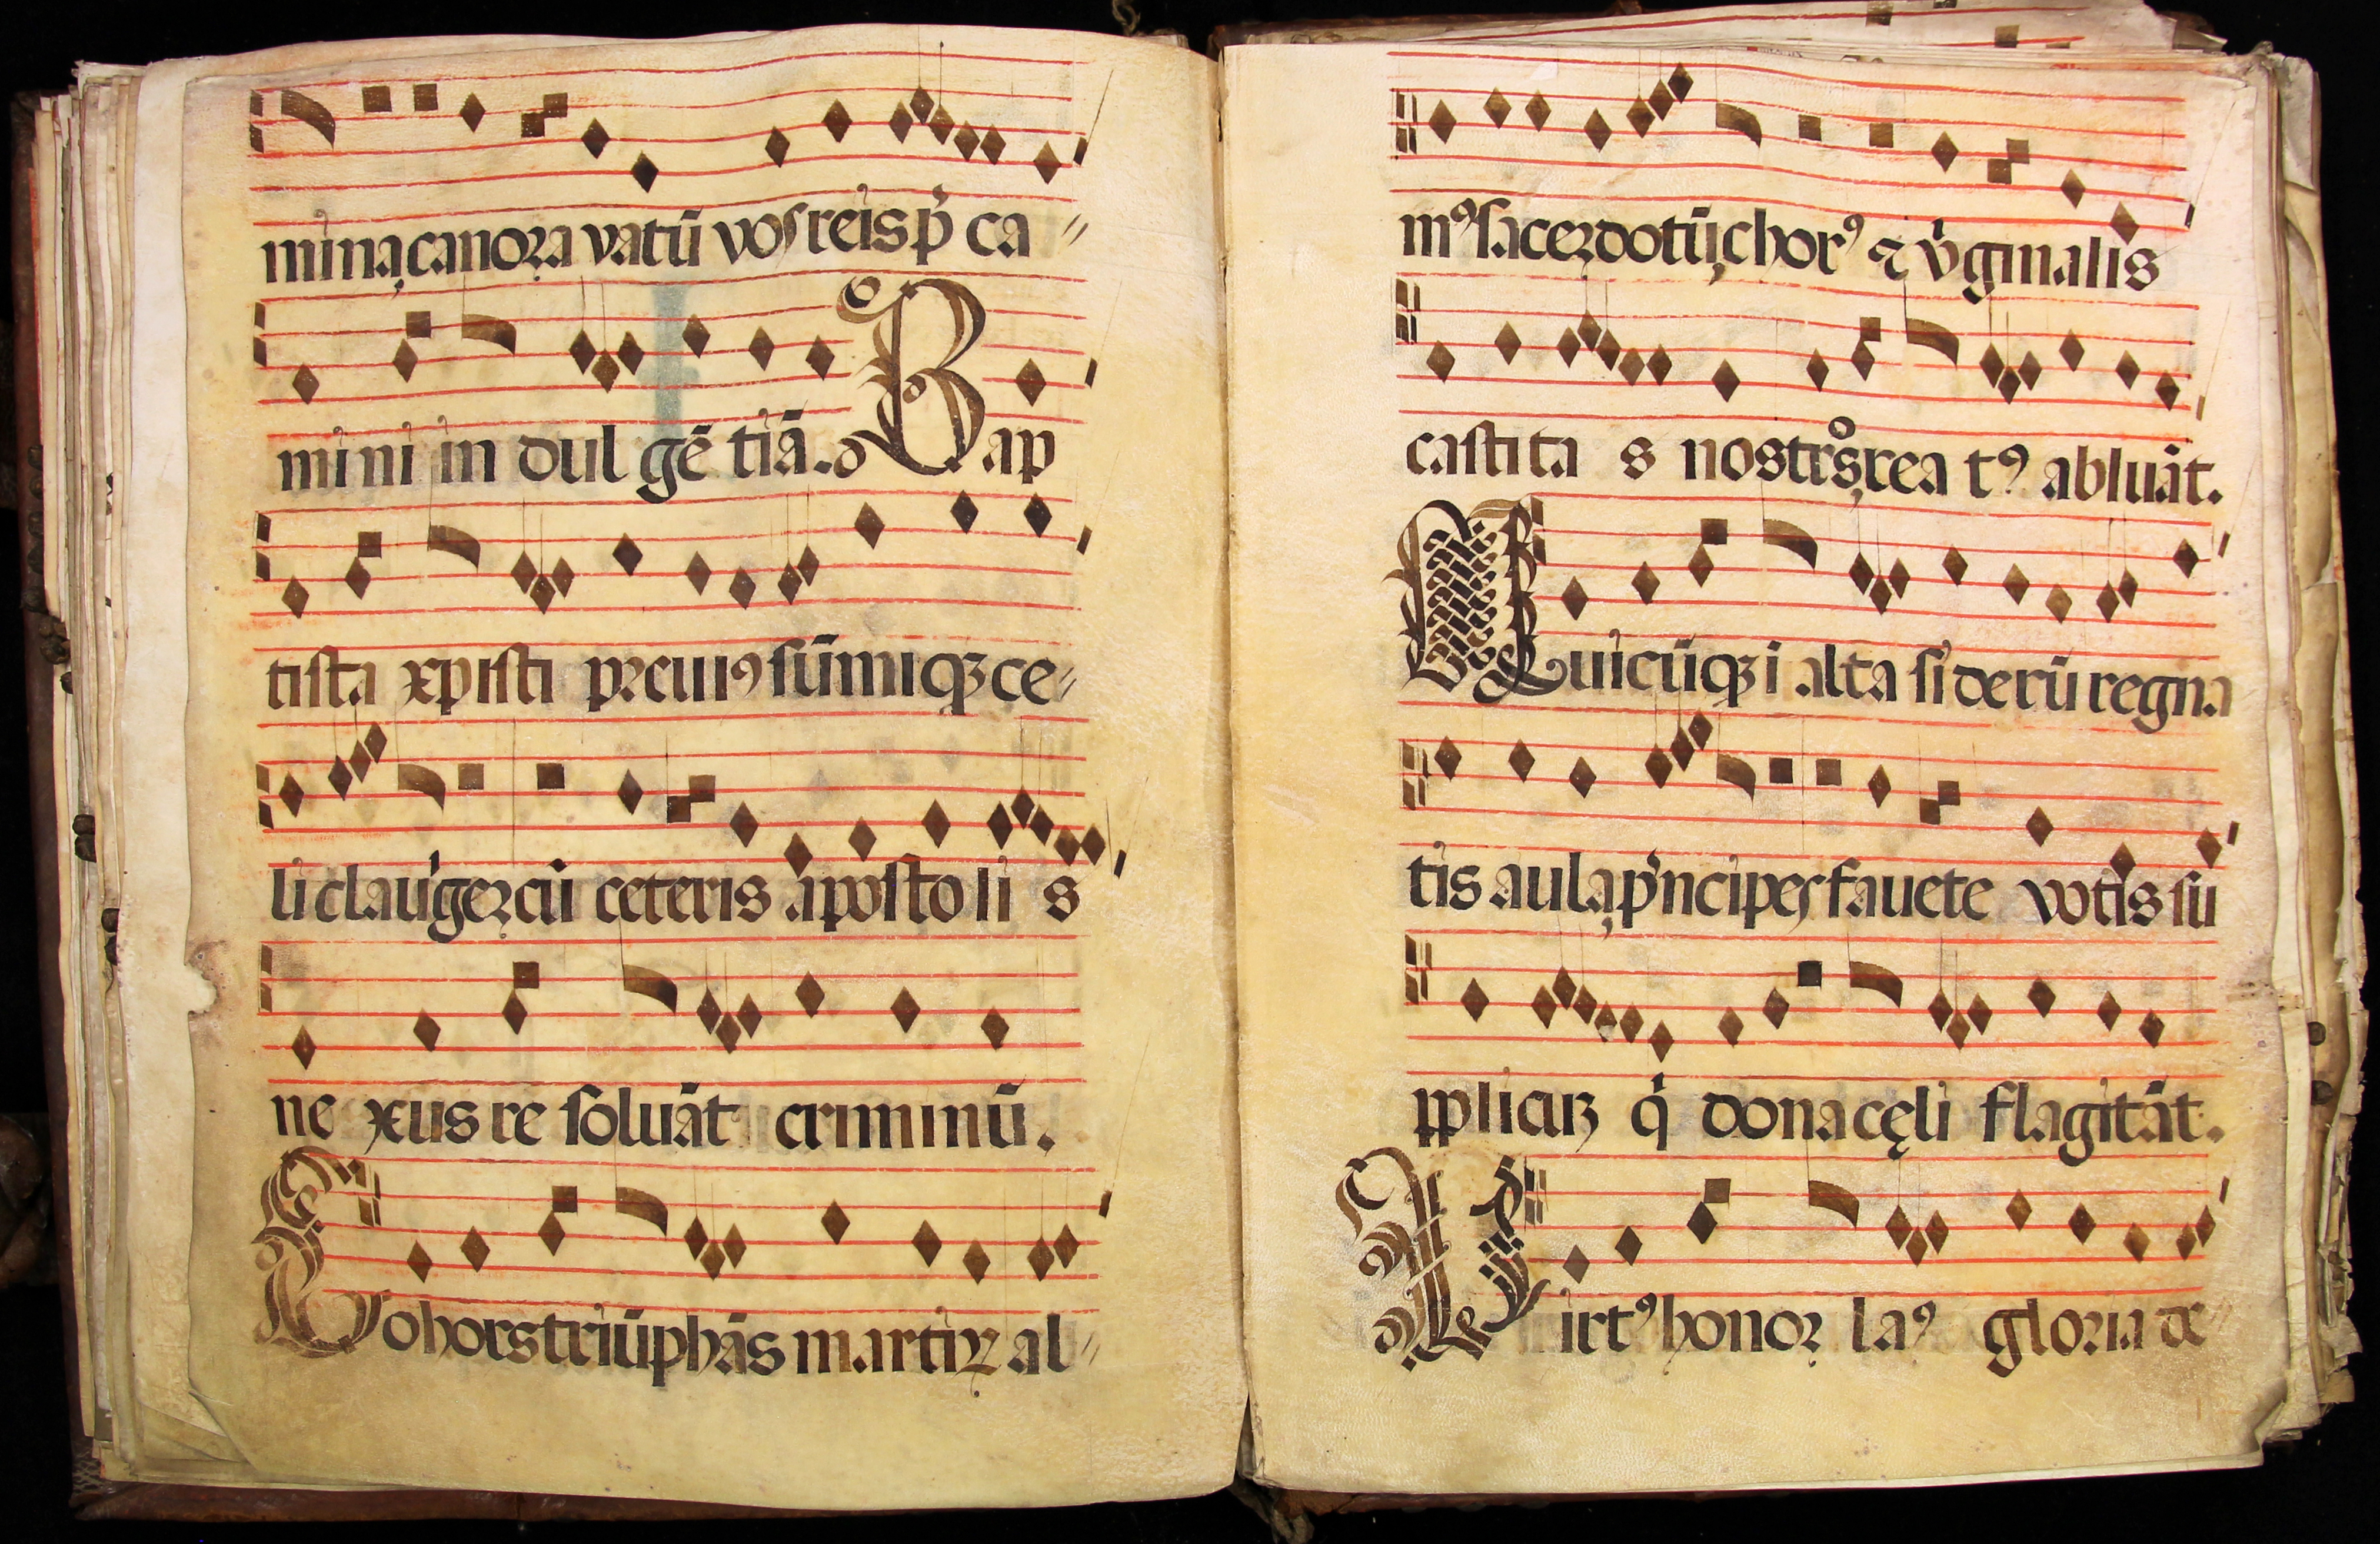 mina, canora vatū vos reis p̄ ca〃
mini in dulgētiā. Bap
tista xpisti p̲cui⁹ sūmiqꝫ ce〃
li clauiger, cū ceteris apostoli s
ne xus re soluāt criminū.
Cohors triūphās martiꝝ al〃
m⁹ sacerdotū, chor⁹ ⁊ v̓ginalis
castita s nostros, rea t⁹ abluāt.
Quicūqꝫ i alta siderū regna
tis aula, pͥncipes fauete votis su
pplicuꝫ qͥ dona cęli flagitāt.
Uirt⁹ honoꝛ la⁹ gloria de〃